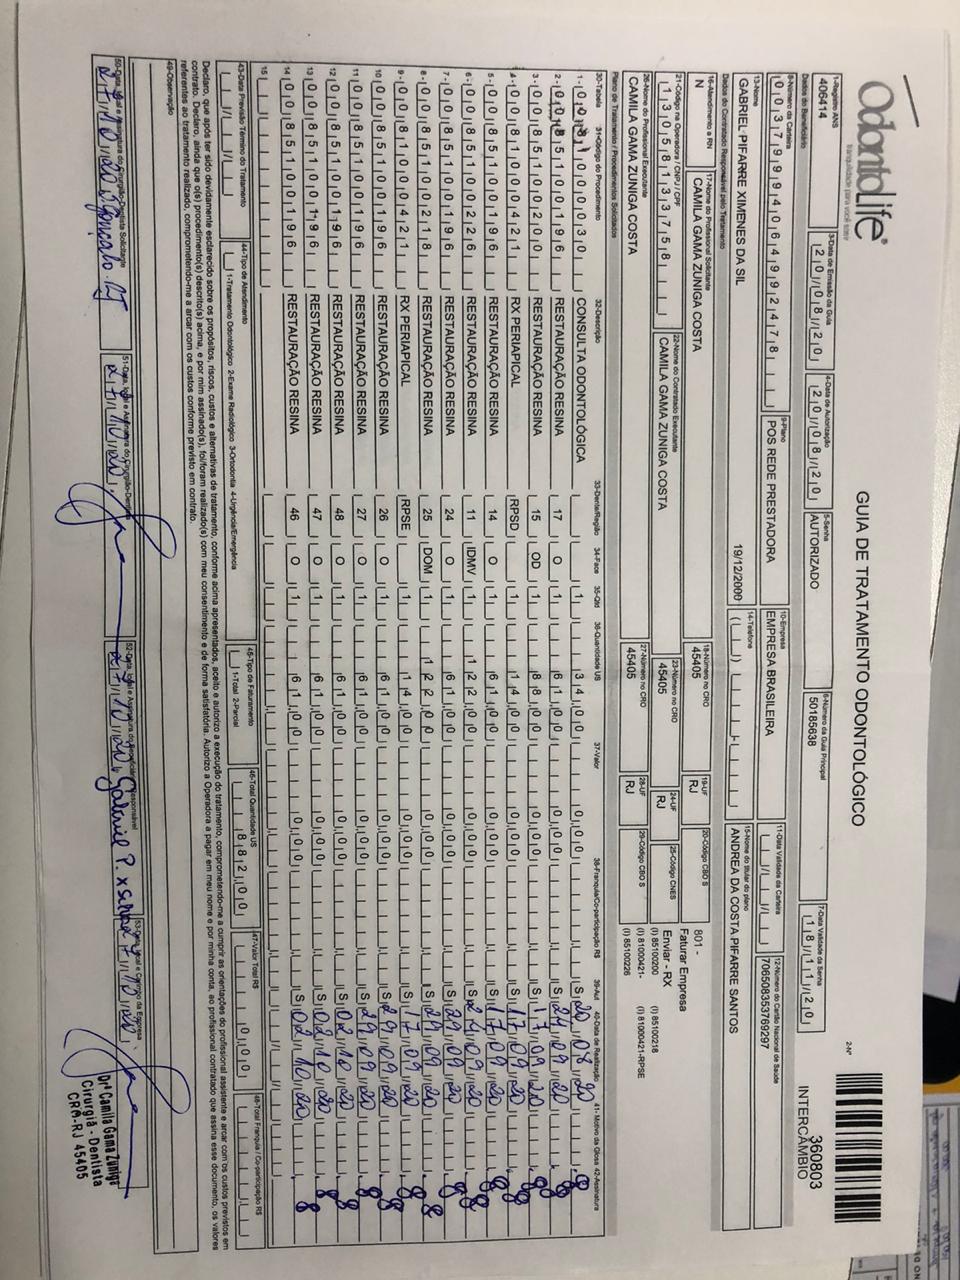 OdontoLife®
tranquilidade para você sorrir
GUIA DE TRATAMENTO ODONTOLÓGICO
2-Nº
360803
INTERCÂMBIO
1-Registro ANS
40614
3-Data de Emissão da Guia
20/08/20
4-Data de Autorização
20/08/20
5-Senha
AUTORIZADO
6-Número da Guia Principal
50185638
7-Data Validade da Senha
18/11/20
Dados do Beneficiário
8-Número da Carteira
00379994064992478
9-Plano
POS REDE PRESTADORA
10-Empresa
EMPRESA BRASILEIRA
11-Data Validade da Carteira
12-Número do Cartão Nacional de Saúde
706508353769297
13-Nome
GABRIEL PIFARRE XIMENES DA SIL
19/12/2000
14-Telefone
15-Nome do titular do plano
ANDREA DA COSTA PIFARRE SANTOS
Dados do Contratado Responsável pelo Tratamento
16-Atendimento a RN
N
17-Nome do Profissional Solicitante
CAMILA GAMA ZUNIGA COSTA
18-Número no CRO
45405
19-UF
RJ
20-Código CBO S
801 -
Faturar Empresa
Enviar - RX
21-Código na Operadora / CNPJ / CPF
13058133758
22-Nome do Contratado Executante
CAMILA GAMA ZUNIGA COSTA
23-Número no CRO
45405
24-UF
RJ
25-Código CNES
26-Nome do Profissional Executante
CAMILA GAMA ZUNIGA COSTA
27-Número no CRO
45405
28-UF
RJ
29-Código CBO S
(I) 85100200 (I) 85100218
(I) 81000421- (I) 81000421-RPSE
(I) 85100226
Plano de Tratamento / Procedimentos Solicitados
30-Tabela 31-Código do Procedimento 32-Descrição 33-Dente/Região 34-Face 35-Qtd 36-Quantidade US 37-Valor 38-Franquia/Co-participação R$ 39-Aut 40-Data de Realização 41-Motivo da Glosa 42-Assinatura
1- CONSULTA ODONTOLÓGICA 1 34,00 0,00 S 20/08/20
2- 00 85100196 RESTAURAÇÃO RESINA 17 O 1 61,00 0,00 S
3- 00 85100200 RESTAURAÇÃO RESINA 15 OD 1 88,00 0,00 S 17/09/20
4- 00 81000421 RX PERIAPICAL RPSD 1 14,00 0,00 S 17/09/20
5- 00 85100196 RESTAURAÇÃO RESINA 14 O 1 61,00 0,00 S 17/09/20
6- 00 85100226 RESTAURAÇÃO RESINA 11 IDMV 1 122,00 0,00 S
7- 00 85100196 RESTAURAÇÃO RESINA 24 O 1 61,00 0,00 S 29/09/20
8- 00 85100218 RESTAURAÇÃO RESINA 25 DOM 1 122,00 0,00 S 29/09/20
9- 00 81000421 RX PERIAPICAL RPSE 1 14,00 0,00 S 17/09/20
10 00 85100196 RESTAURAÇÃO RESINA 26 O 1 61,00 0,00 S 29/09/20
11 00 85100196 RESTAURAÇÃO RESINA 27 O 1 61,00 0,00 S 29/09/20
12 00 85100196 RESTAURAÇÃO RESINA 48 O 1 61,00 0,00 S 02/10/20
13 00 85100196 RESTAURAÇÃO RESINA 47 O 1 61,00 0,00 S 02/10/20
14 00 85100196 RESTAURAÇÃO RESINA 46 O 1 61,00 0,00 S 02/10/20
15
43-Data Previsão Término do Tratamento
44-Tipo de Atendimento
1-Tratamento Odontológico 2-Exame Radiológico 3-Ortodontia 4-Urgência/Emergência
45-Tipo de Faturamento
1-Total 2-Parcial
46-Total Quantidade US
882,00
47-Valor Total R$
0,00
48-Total Franquia / Co-participação R$
Declaro, que após ter sido devidamente esclarecido sobre os propósitos, riscos, custos e alternativas de tratamento, conforme acima apresentados, aceito e autorizo a execução do tratamento, comprometendo-me a cumprir as orientações do profissional assistente e arcar com os custos previstos em
contrato. Declaro, ainda que o(s) procedimento(s) descrito(s) acima, e por mim assinado(s), foi/foram realizado(s) com meu consentimento e de forma satisfatória. Autorizo a Operadora a pagar em meu nome e por minha conta, ao profissional contratado que assina esse documento, os valores
referentes ao tratamento realizado, comprometendo-me a arcar com os custos conforme previsto em contrato.
49-Observação
50-Data, local e Assinatura do Cirurgião-Dentista Solicitante
27/10/20 S Gonçalo RJ
51-Data, local e Assinatura do Cirurgião-Dentista
27/10/20
52-Data, local e Assinatura do Beneficiário/Responsável
27/10/20 Gabriel P.
53-Data, local e Carimbo da Empresa
27/10/20
Drª Camila Gama Zuniga
Cirurgiã - Dentista
CRO-RJ 45405